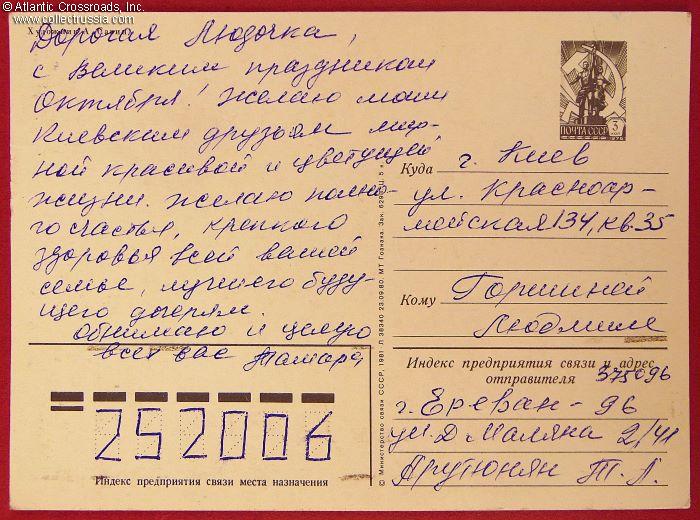 © Atlantic Crossroads, Inc.
www.collectrussia.com
Дорогая Людочка,
с Великим праздником
Октября! Желаю моим
Киевским друзьям мир-
ной красивой и цветущей
жизни. Желаю полно-
го счастья, крепкого
здоровья всей вашей
семье, лучшего буду-
щего дочерям.
Обнимаю и целую
всех вас Тамара,
ПОЧТА СССР
Куда г. Киев
ул. Красноар-
мейская 134, кв. 35
Кому Горшиной
Людмиле
Индекс предприятия связи и адрес
отправителя 375096
г. Ереван - 96
ул. Д. Маляна 2/41
Арутюнян Т. Л.
252006
Индекс предприятия связи места назначения
© Министерство связи СССР, 1981. Л 38340 23.09.80. МТ Гознака. Зак.